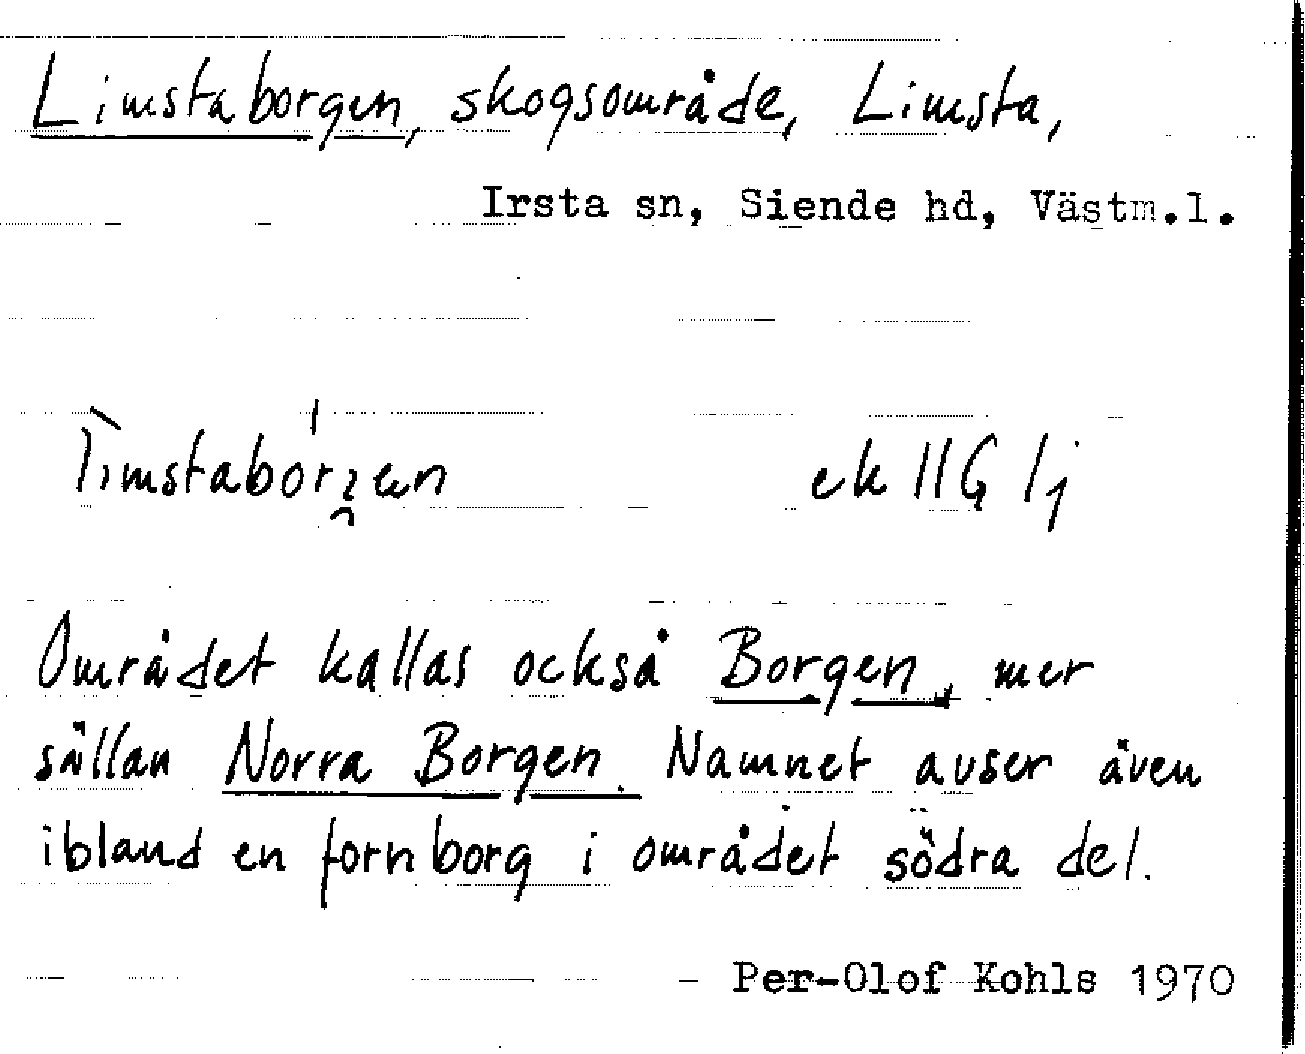 Limstaborgen, skogsområde, Limsta,
Irsta sn, Siende hd, Västm.l.
ek 11G 1j
Området kallas också Borgen, mer
sällan Norra Borgen. Namnet avser även
ibland en fornborg i området södra del.
Per-Olof Kohls 1970